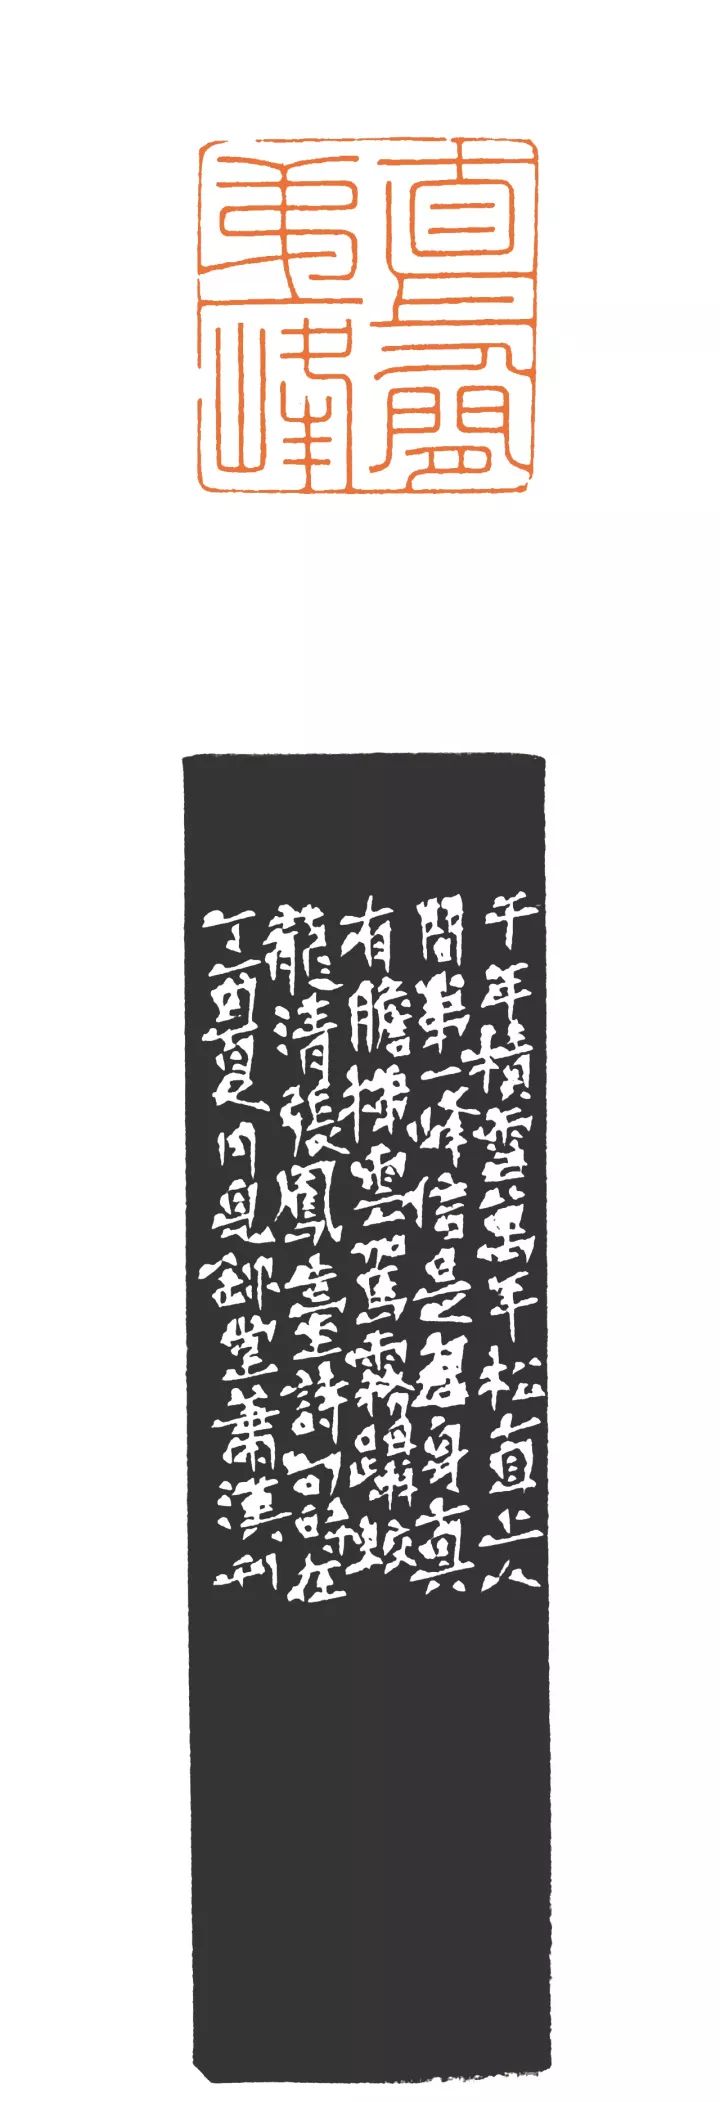 直上人間
弟一峰
千年積雪萬年松直上人
間第一峰信是君身真
有膽梯雲駕霧躡蛟
龍清張鳳臺詩句時在
丁酉夏月堂蕭漢刊